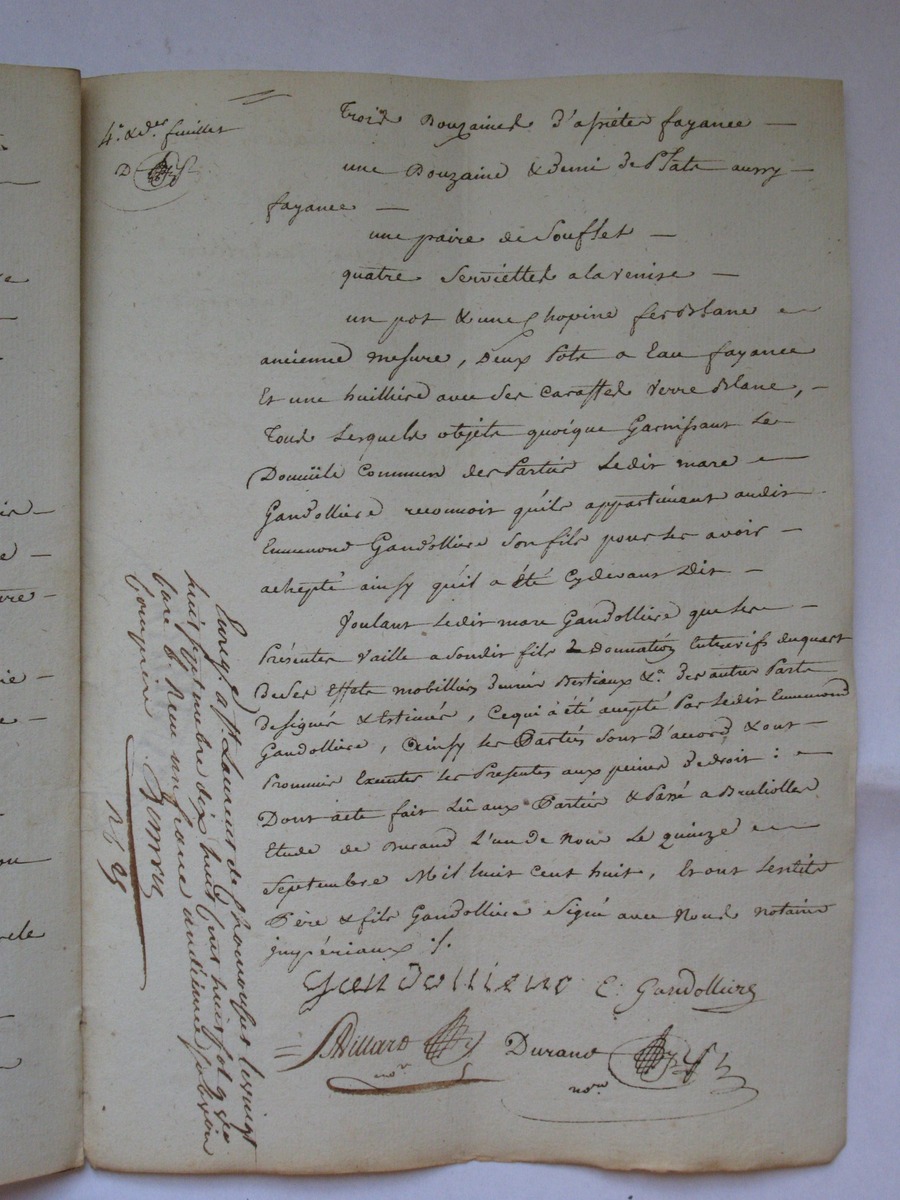 4e. & der. feuillet
D
Trois Douzaines d'assietes fayance —
une Douzaine & demi de Plats aussy —
fayance —
une paire de Soufflet —
quatre Serviettes a la venise —
un pot & une Chopine fer Blanc
ancienne mesure, Deux Pots a Eau fayance
Et une huilliere avec ses Caraffes Verre Blanc, —
Tous Lesquels objets quoique Garnissant Le
Domicile Commun des Parties Ledit marc
Gandolliere reconnoit qu'ils appartiennent audit
Ennemond Gandolliere Son fils pour les avoir —
achepté ainsy qu'il a été Cydevant Dit —
Voulant Ledit marc Gandolliere que les —
Présentes Vaille a Sondit fils De Donnation Entrevifs du quart
de Ses Effets mobilliers denrées Bestiaux &a. des autres Parts
designés & Estimés, Ce qui a été accepté Par Ledit Ennemond
Gandolliere, Ainsy les Parties Sont D'accord & ont —
Promis Executer les Presentes aux peines de droit : —
Dont acte fait Lû aux Parties & Passé a
Etude de Durand L'un de Nous Le quinze
Septembre Mil huit Cent huit, Et ont Lesdits
Père & fils Gandolliere Signé avec Nous notaires
impériaux ./.
Gandolliere E. Gandolliere
Villard Durand
nore nore
Enreg. a St. Laurent de Chamousset le vingt
huit Septembre dix huit Cent huit fol 9
Reçu un franc
Compris